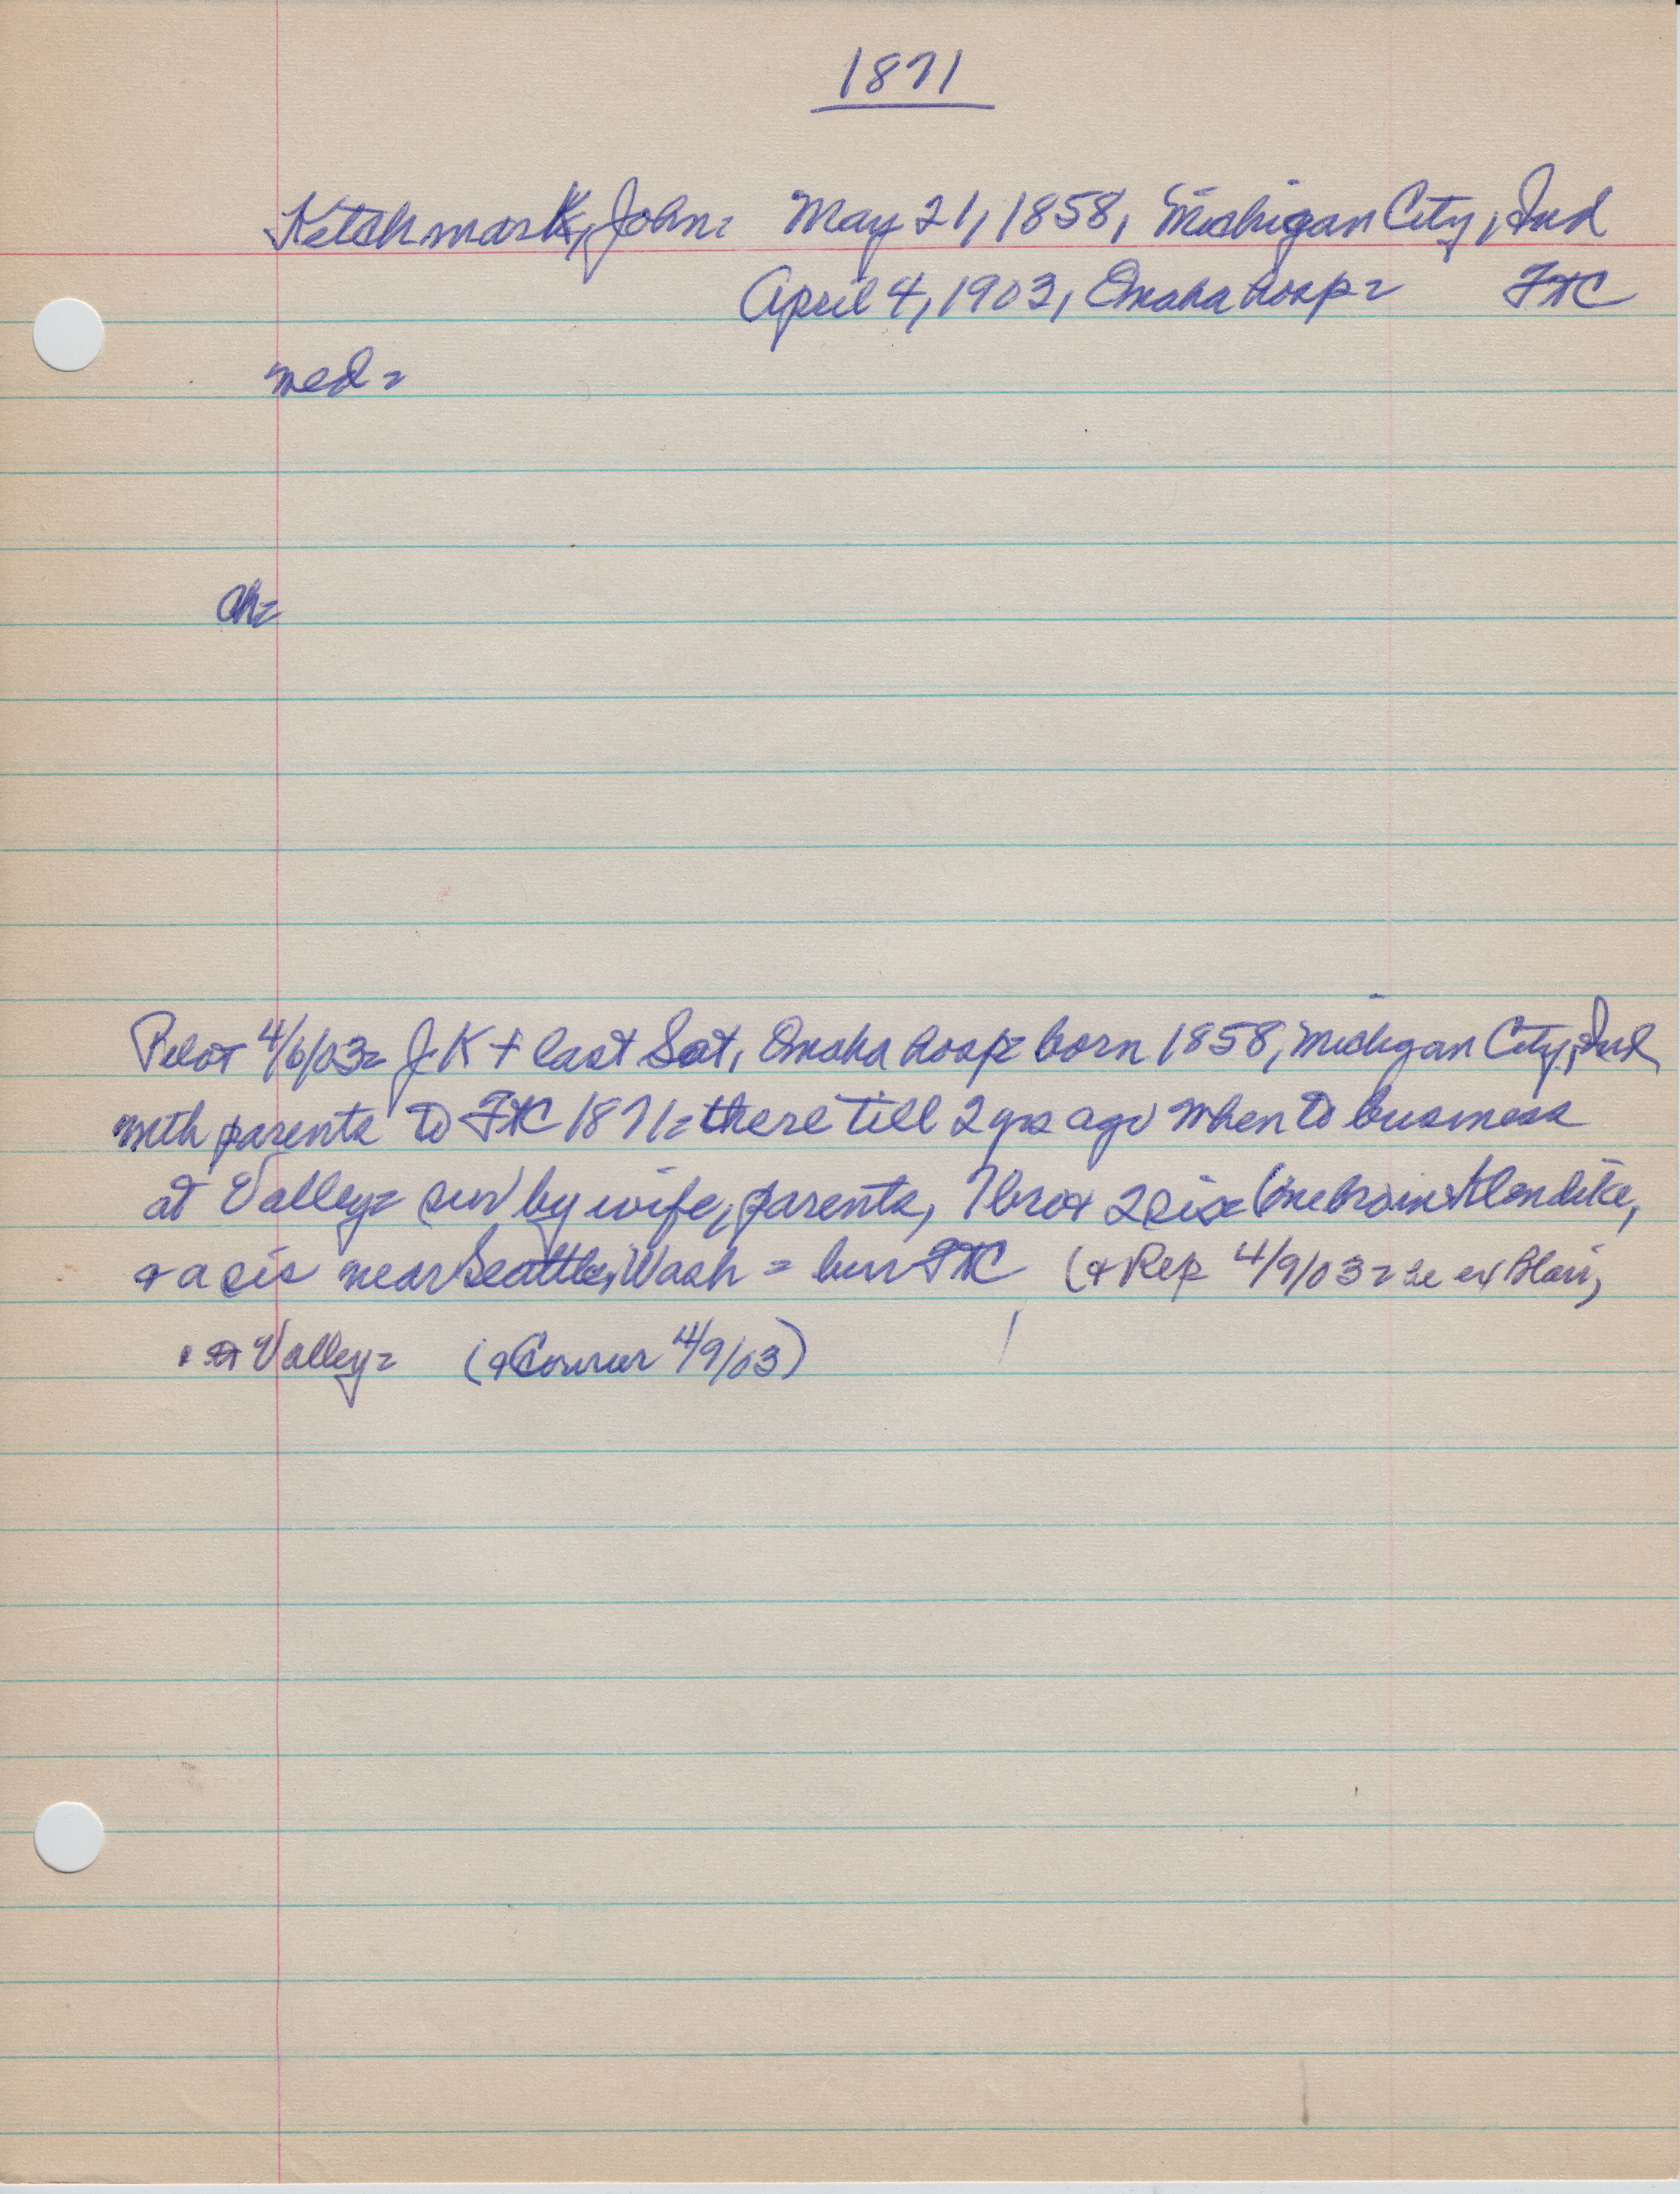 1871
Ketchmark, John= May 21, 1858, Michigan City, Ind
April 4, 1903, Omaha hosp= FTC
med=
Ch=
Pilot 4/6/03= J.K + last Sat, Omaha hosp= born 1858, Michigan City, Ind
with parents to FTC 1871= there till 2 yrs ago when to business
at Valley= sur by wife, parents, 7 bro + 2 sis= (one bro in Klondike,
+ a sis near Seattle, Wash = bur FTC (+ Rep 4/9/03= he ex Blair,
+ Valley= (+ Courier 4/9/03)